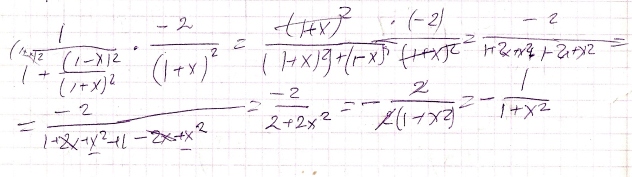 \frac{1}{1+\frac{(1-x)^2}{(1+x)^2}} \cdot \frac{-2}{(1+x)^2} = \frac{(1+x)^2 \cdot (-2)}{((1+x)^2+(1-x)^2)(1+x)^2} = \frac{-2}{1+2x+x^2+1-2x+x^2} =
= \frac{-2}{1+2x+x^2+1-2x+x^2} = \frac{-2}{2+2x^2} = -\frac{2}{2(1+x^2)} = -\frac{1}{1+x^2}